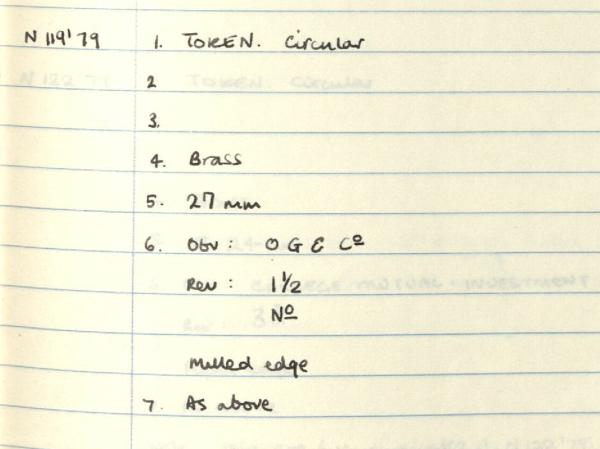 N 119'79 1. TOKEN. Circular
2
3.
4. Brass
5. 27 mm
6. Obv : O G & Cº
Rev : 1 1/2
Nº
Milled edge
7. As above